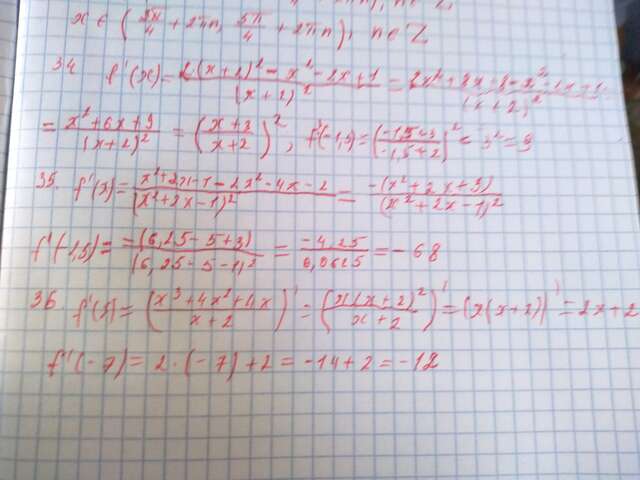 x ∈ (5π/4 + 2πn, 5π/4 + 2πn), n∈Z
34 f'(x) = (2(x+2)² - x² - 2x + 1)/(x+2)² = (2x² + 8x + 8 - x² - 2x + 1)/(x+2)²
= (x² + 6x + 9)/(x+2)² = ((x+3)/(x+2))², f'(-1,5) = ((-1,5+3)/(-1,5+2))² = 3² = 9
35. f'(x) = (x² + 2x - 1 - 2x² - 4x - 2)/(x² + 2x - 1)² = -(x² + 2x + 3)/(x² + 2x - 1)²
f'(-2,5) = -(6,25 - 5 + 3)/(6,25 - 5 - 1)² = -4,25/0,0625 = -68
36. f'(x) = ((x³ + 4x² + 4x)/(x+2))' = (x(x+2)²/(x+2))' = (x(x+2))' = 2x + 2
f'(-7) = 2·(-7) + 2 = -14 + 2 = -12